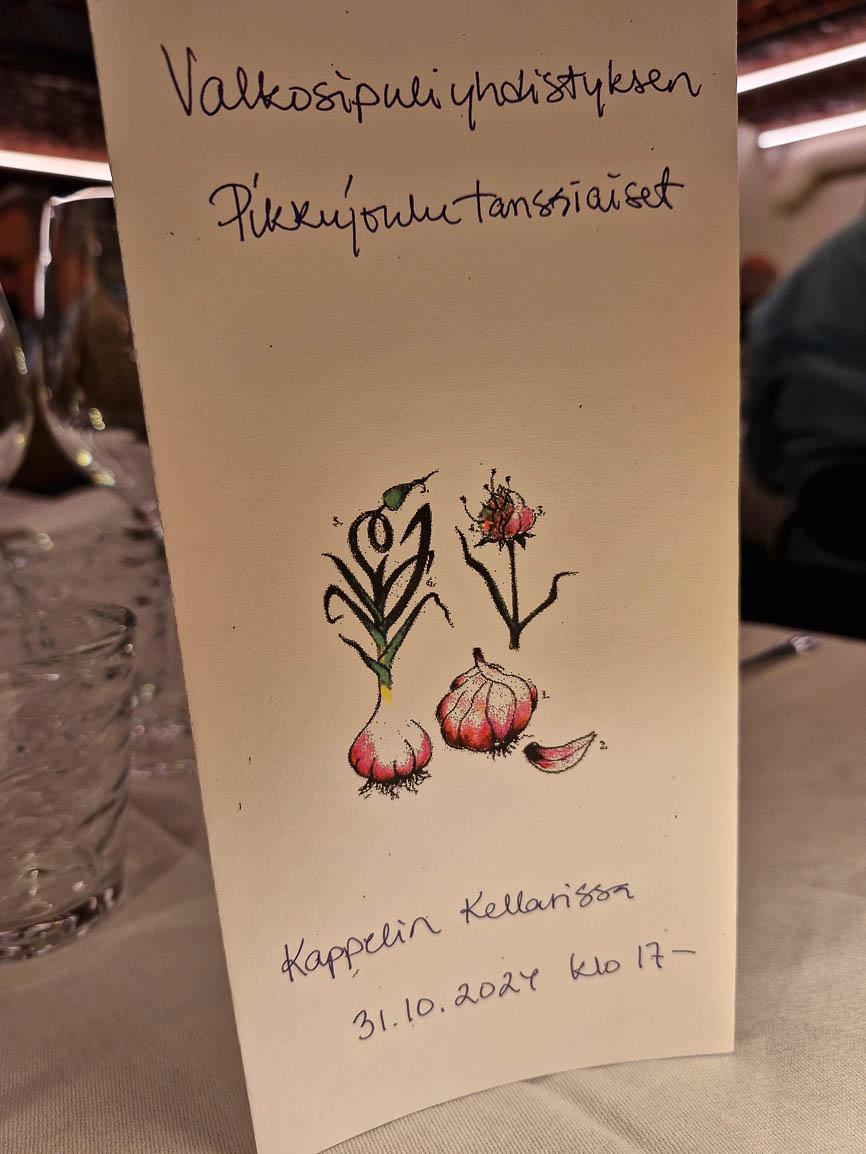 Valkosipuliyhdistyksen
Pikkujoulutanssiaiset
3.
1.
2.
Kappelin Kellarissa
31.10.2024 klo 17-